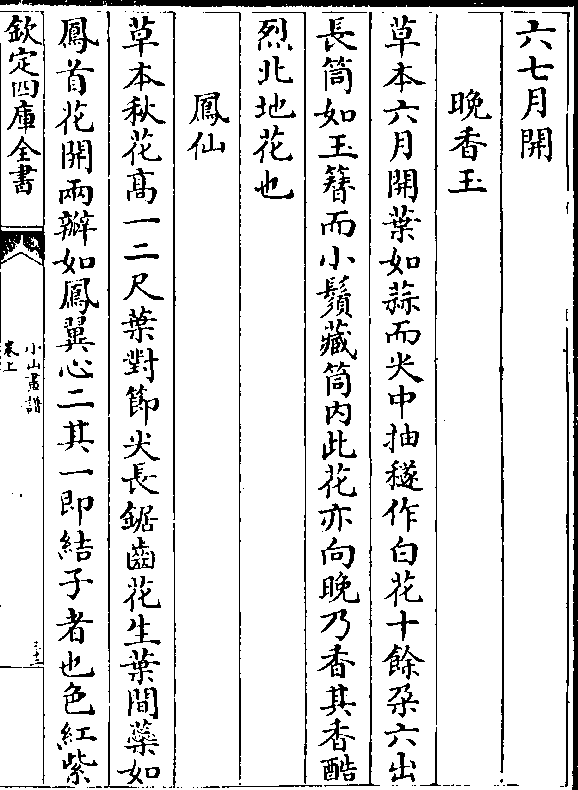 六七月開
晚香玉
草本六月開葉如蒜而尖中抽穟作白花十餘朶六出
長筒如玉簪而小鬚藏筒内此花亦向晚乃香其香酷
烈北地花也
鳳仙
草本秋花髙一二尺葉對節尖長鋸齒花生葉間蘂如
鳳首花開兩瓣如鳳翼心二其一即結子者也色紅紫
欽定四庫全書
小山畫譜
卷上